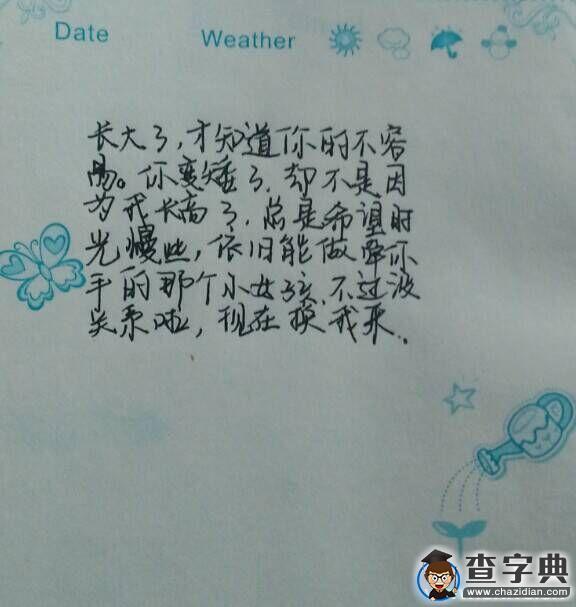 Date Weather
长大了，才知道你的不容
易。你变矮了，却不是因
为我长高了，总是希望时
光慢些，依旧能做牵你
手的那个小女孩，不过没
关系啦，现在换我来.
查字典
www.chazidian.com